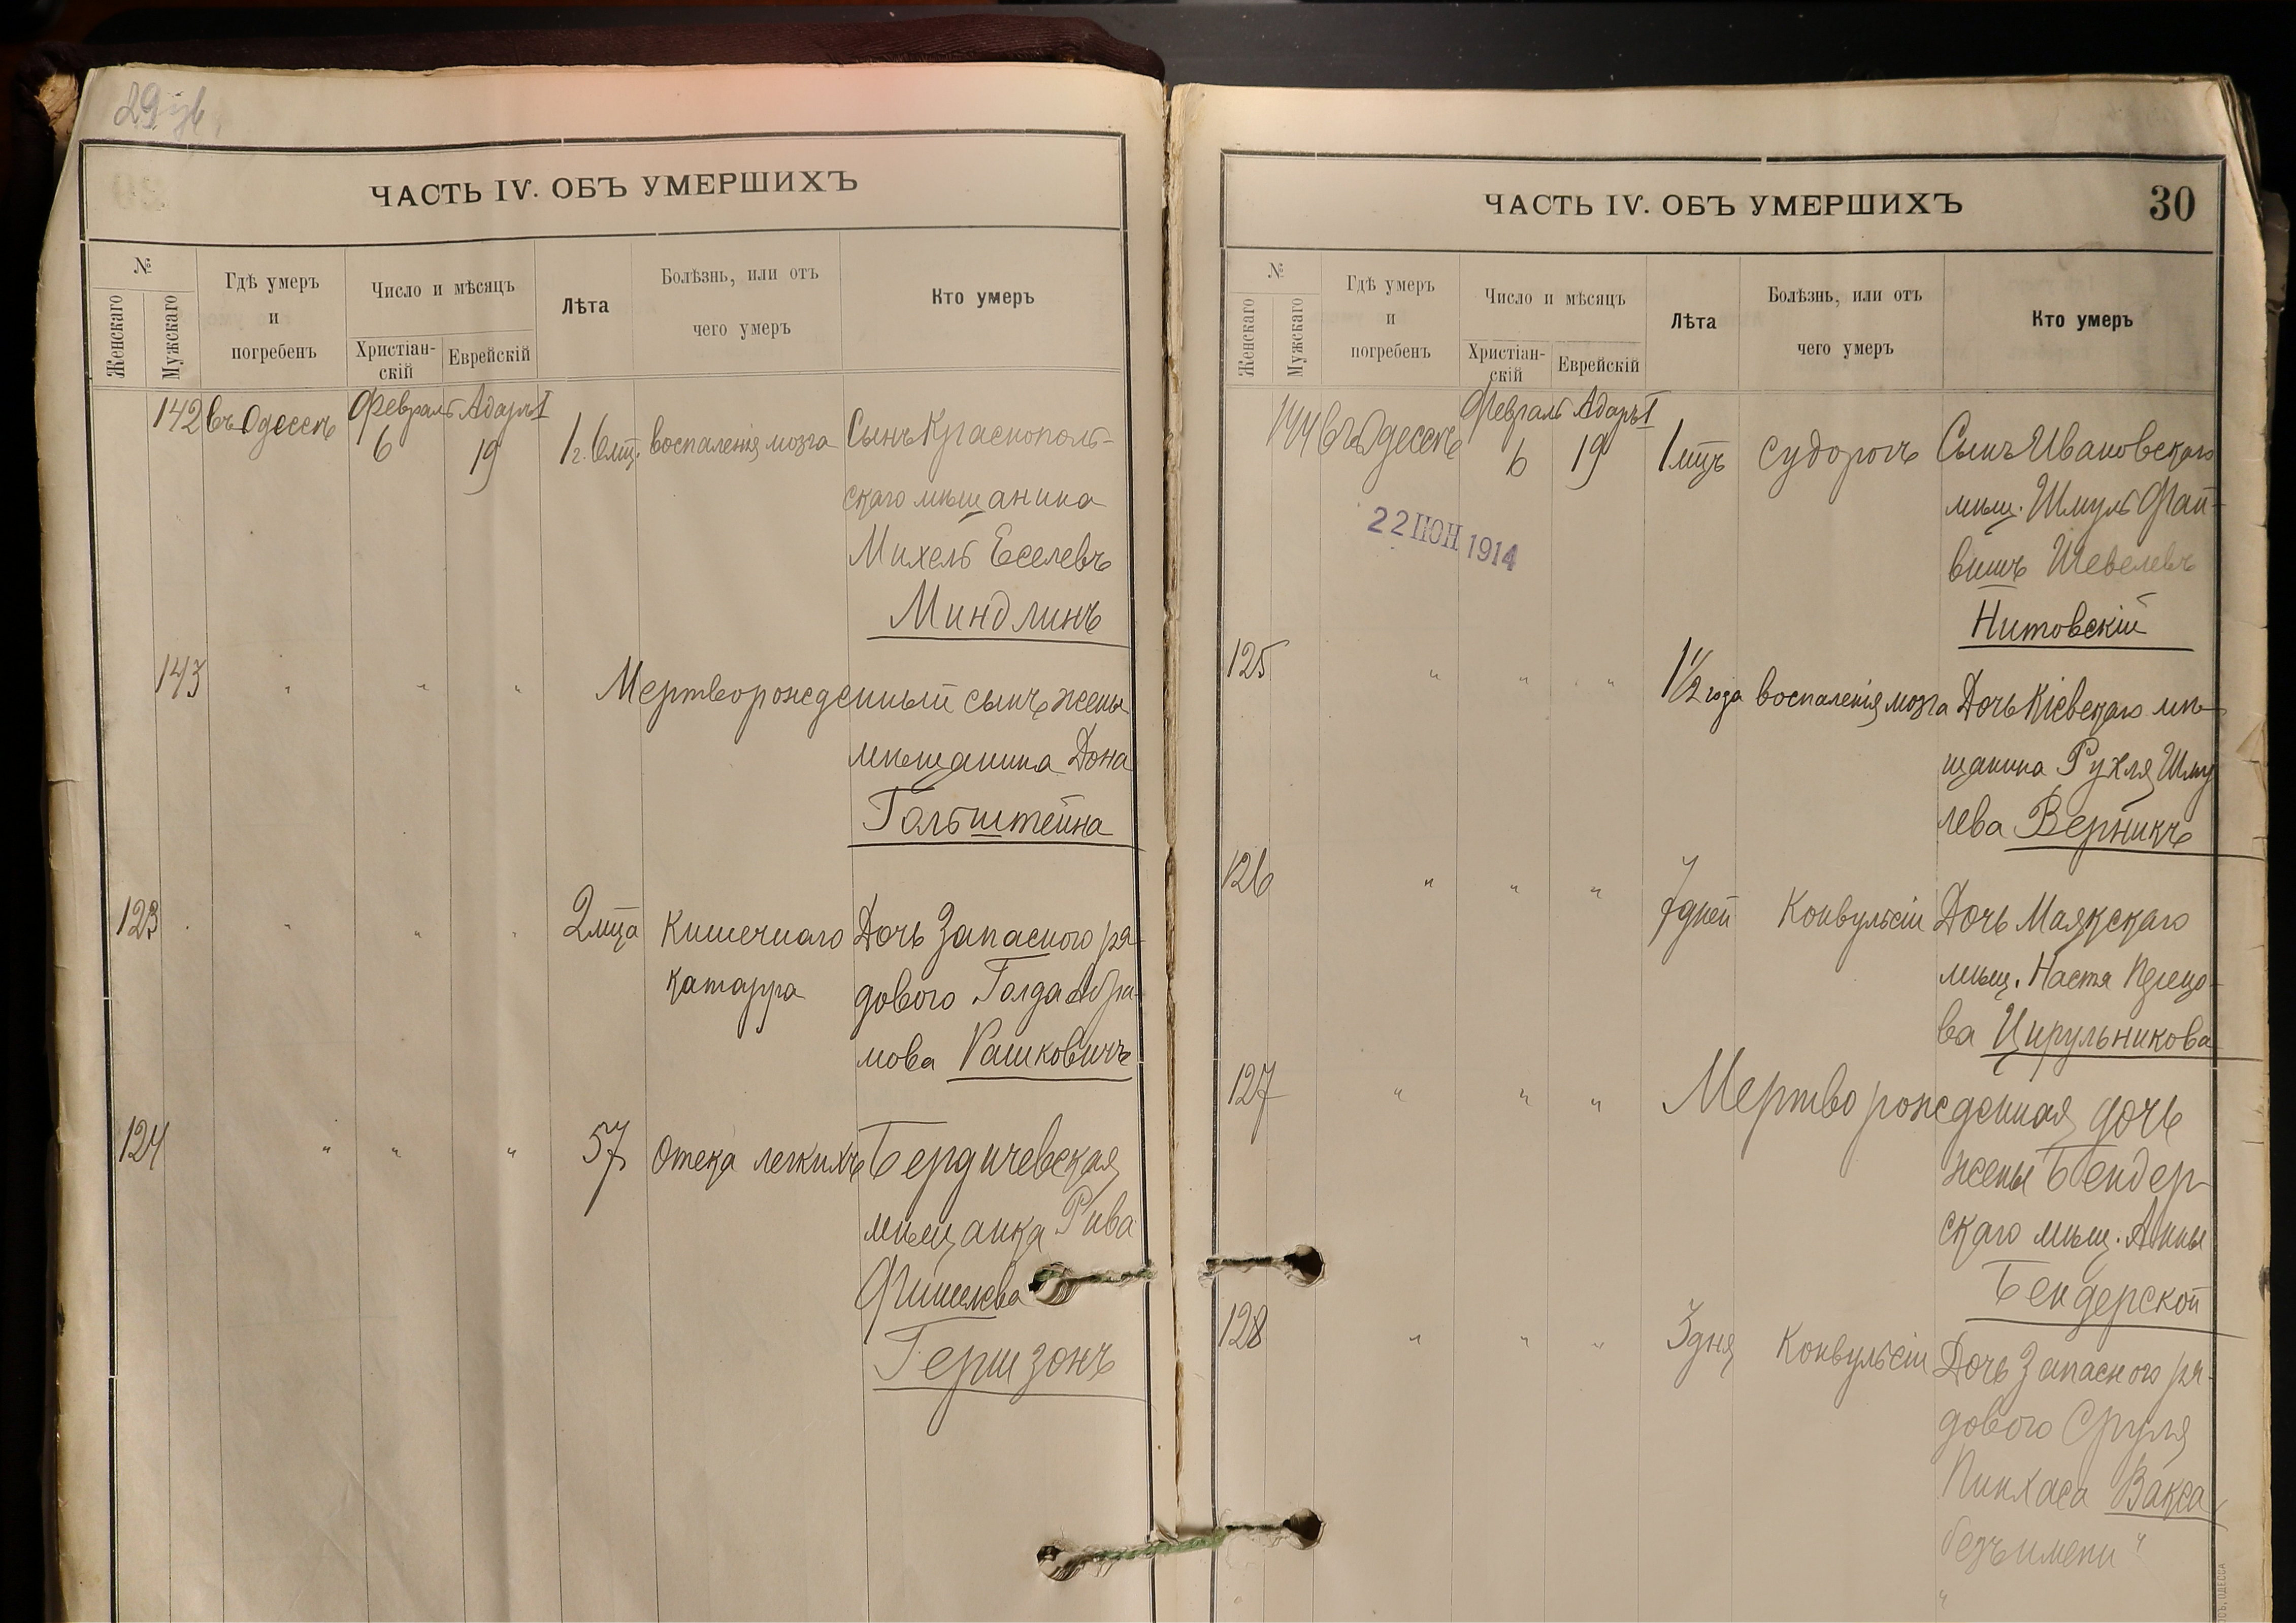 29
ЧАСТЬ IV. ОБЪ УМЕРШИХЪ
№
Женскаго
Мужскаго
Гдѣ умеръ
и
погребенъ
Число и мѣсяцъ
Христіан-
скій
Еврейскій
Лѣта
Болѣзнь, или отъ
чего умеръ
Кто умеръ
142 въ Одессѣ Февраль 6 Адаръ I 19 1 г. 6 мц. воспаленія мозга Сынъ Краснополь-
скаго мѣщанина
Михель Еселевъ
Миндлинъ
143 " " " Мертворожденный сынъ жены
мѣщанина Дона
Гольштейна
123 " " " 2 мца Кишечнаго Дочь Запаснаго ря-
катарра дового Голда Абра-
мова Рашковичъ
124 " " " 57 Отека легкихъ Бердичевская
мѣщанка Рива
Фишелева
Гершзонъ
ЧАСТЬ IV. ОБЪ УМЕРШИХЪ
30
№
Женскаго
Мужскаго
Гдѣ умеръ
и
погребенъ
Число и мѣсяцъ
Христіан-
скій
Еврейскій
Лѣта
Болѣзнь, или отъ
чего умеръ
Кто умеръ
144 въ Одессѣ Февраль 6 Адаръ I 19 1 мцъ судорогъ Сынъ Ивановскаго
мѣщ. Шмуль Фай-
вишъ Шевелевъ
22 ІЮН 1914
Нитовскій
125 " " " 1 1/2 года воспаленія мозга Дочь Кіевскаго мѣ-
щанина Рухля Шму
лева Верникъ
126 " " " 7 дней Конвульсіи Дочь Маякскаго
мѣщ. Настя
ва Цирульникова
127 " " " Мертворожденная дочь
жены Бендер-
скаго мѣщ. Анны
Бендерской
128 " " " 3 дня Конвульсіи Дочь Запасного ря-
дового Сруля
Пинхаса Вакса
безъ имени "
ОДЕССА